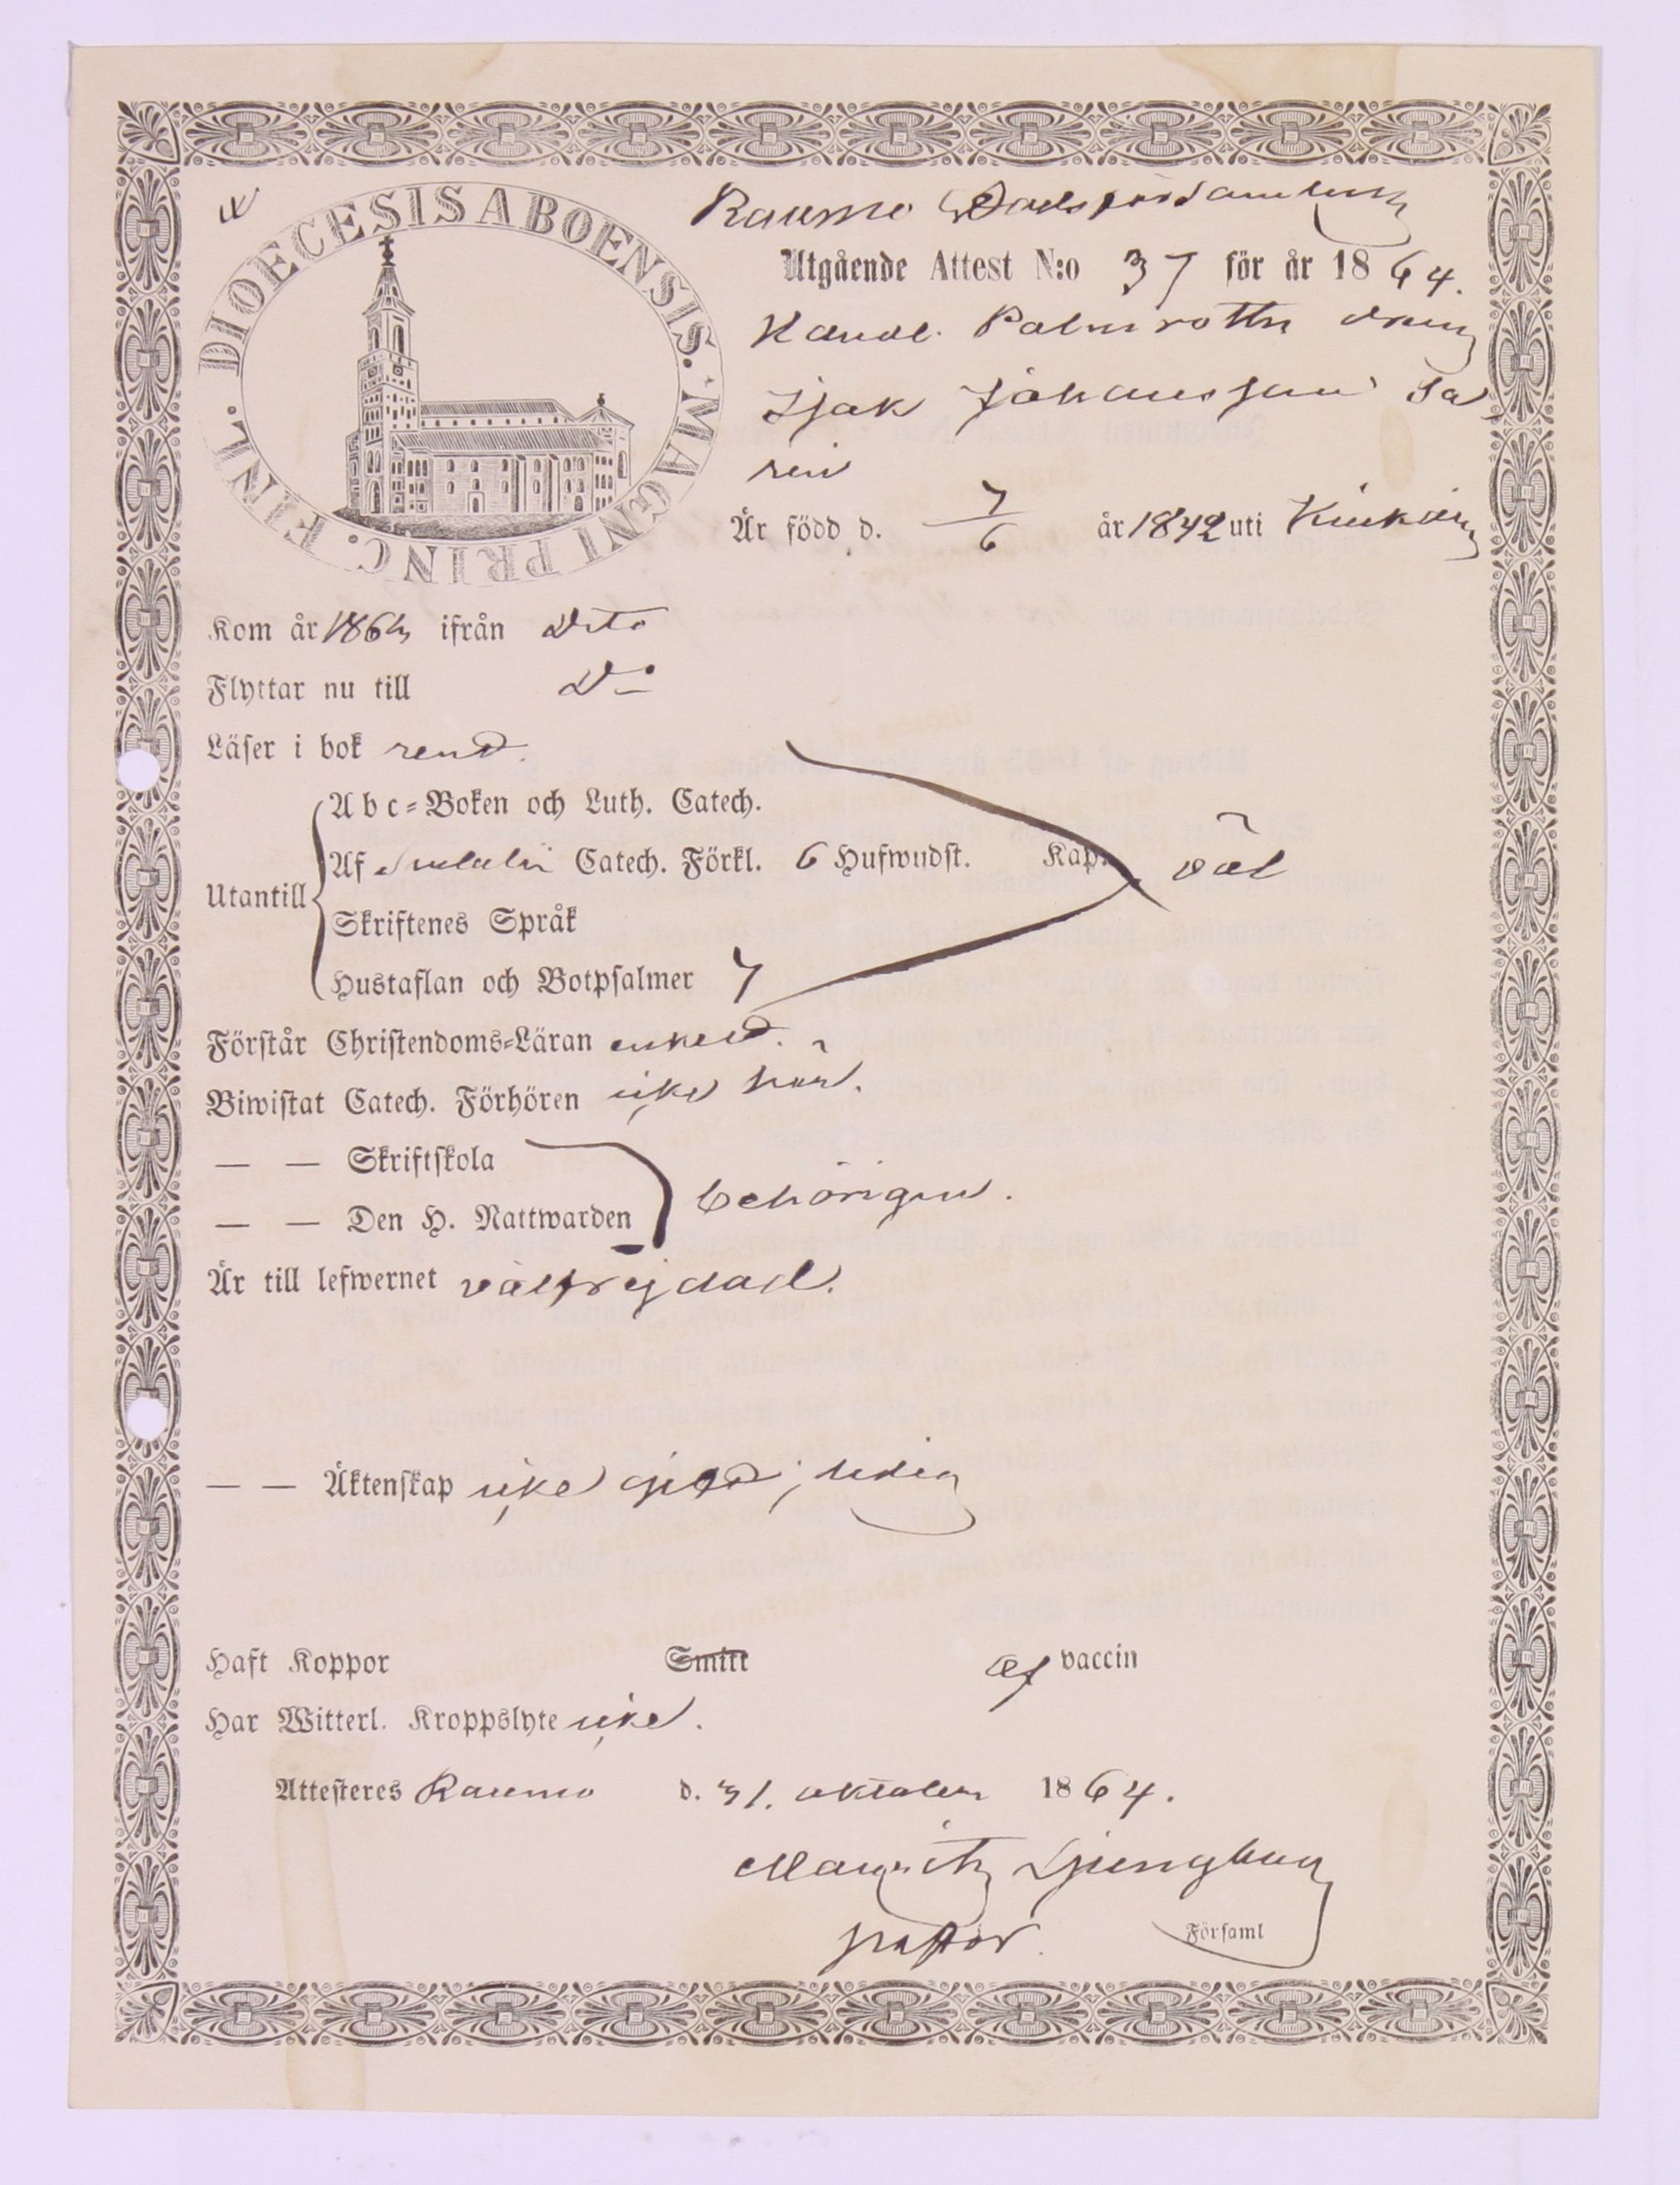 DIOECESIS ABOENSIS. MAGNI PRINC. FINL.
Raumo Stadsförsamling
Utgående Attest N:o 37 för år 1864.
Handl. Palmroths dreng
Isak Johansson Sa
ren
Är född d. 7/6 år 1842 uti Kiukais
Kom år 1863 ifrån Dito
Flyttar nu till Do
Läser i bok rent.
Utantill
Abc-Boken och Luth. Catech.
Af Svebelii Catech. Förkl. 6 Hufwudst. Kap. väl
Skriftenes Språk
Hustaflan och Botpsalmer 7
Förstår Christendoms-Läran enkelt.
Biwistat Catech. Förhören icke här.
— — Skriftskola
— — Den H. Nattwarden behörigen.
Är till lefwernet välfrejdad.
— — Äktenskap icke gift; ledig
Haft Koppor Smitt af vaccin
Har Witterl. Kroppslyte icke.
Attesteres Raumo d. 31. oktober 1864.
Mauritz Ljungberg
pastor. Församl